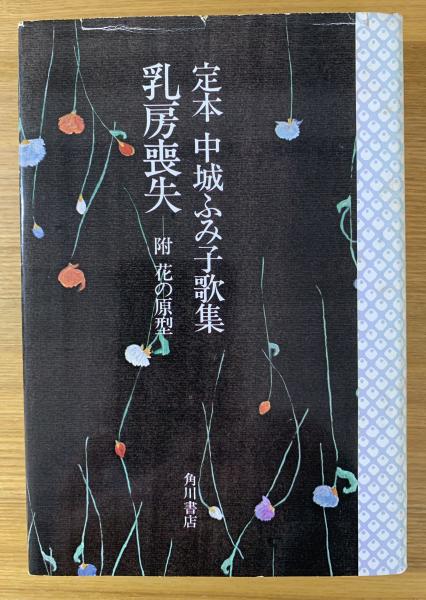 定本 中城ふみ子歌集
乳房喪失
―附 花の原型
角川書店